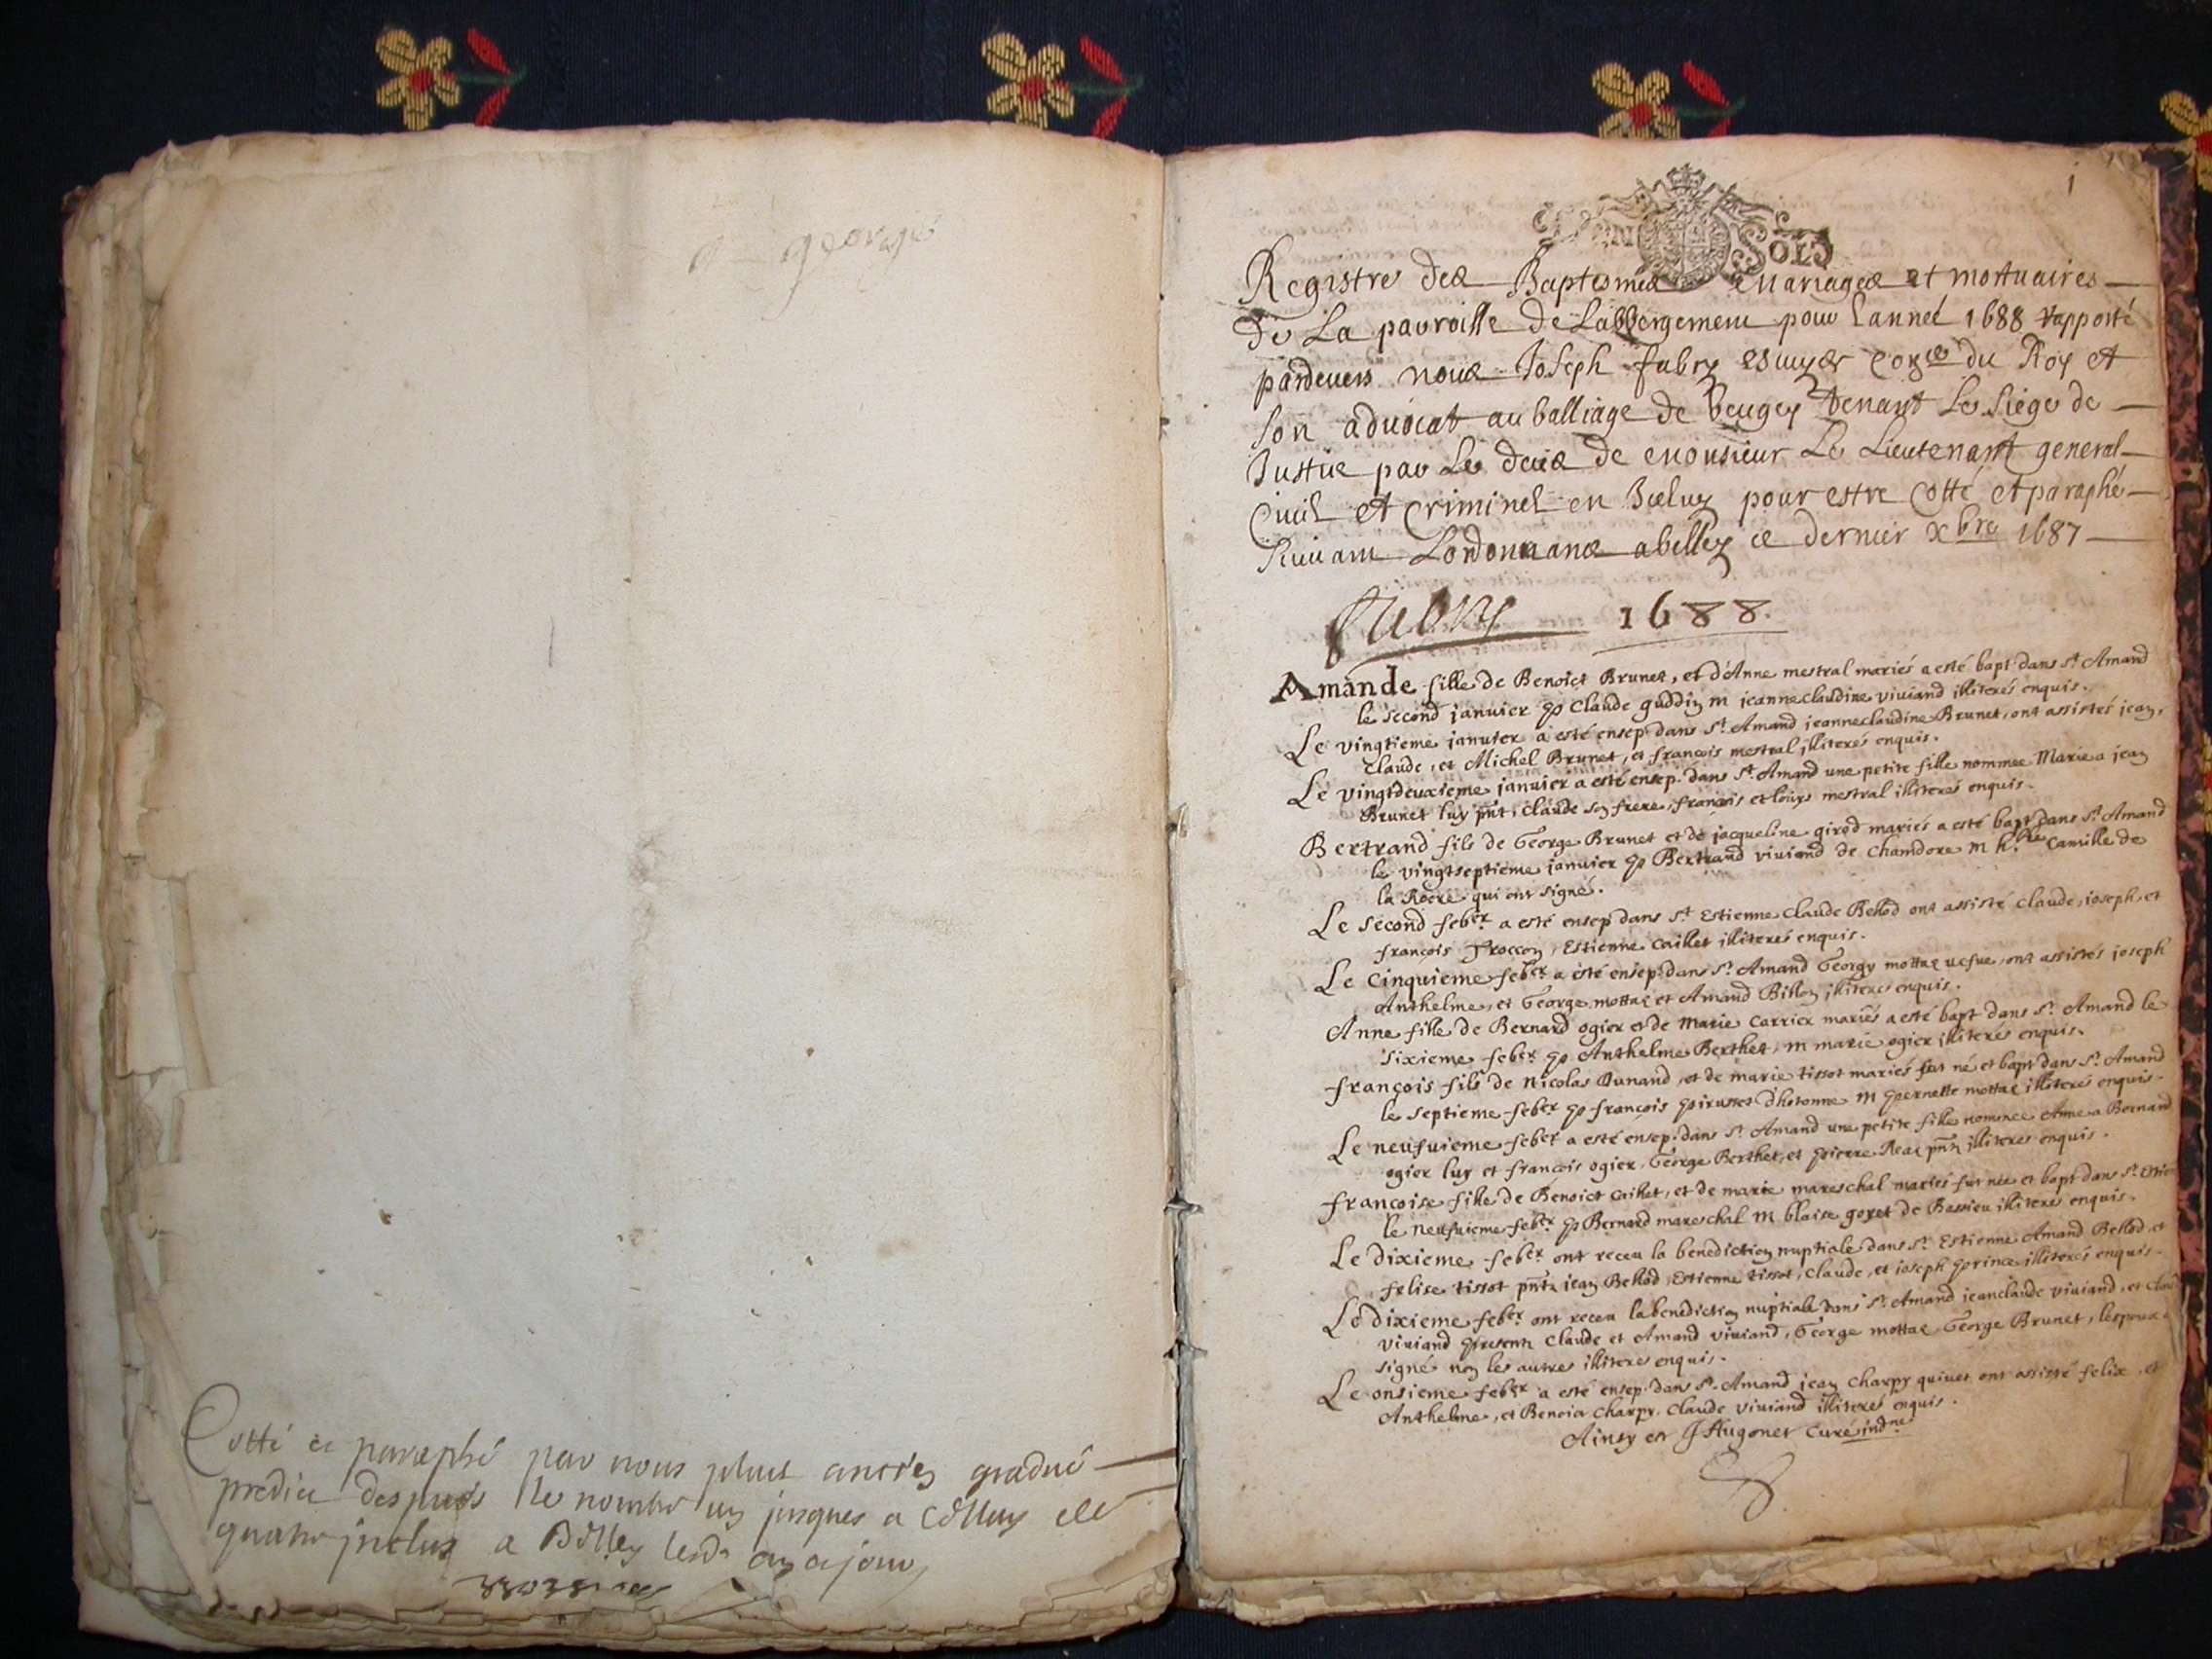 george
Cotté et paraphé par nous plus ancien gradué
predict despuis le nombre un jusques a celluy de
quatre inclus a Belley lesd. an et jour
1
SOLS
Registre des Baptesmes Mariages et mortuaires
de La parroisse de Labbergement pour Lanneé 1688 rapporté
pardevers nous Joseph fabry escuyer con.er du Roy et
son advocat au balliage de beugey tenant Le siege de
Justice par Le deces de monsieur Le Lieutenant general
Civil et criminel en Iceluy pour estre cotté et paraphé
suivant Lordonnance a belley ce dernier xbre 1687
fabry 1688.
Amande fille de Benoict Brunet, et d'Anne mestral mariés a esté bapt. dans st Amand
le second janvier p Claude guddin m jeanneclaudine viviand illiterés enquis.
Le vingtieme janvier a esté ensep. dans st Amand jeanneclaudine Brunet, ont assistés jean,
Claude, et Michel Brunet, et françois mestral illiterés enquis.
Le vingtdeuxieme janvier a esté ensep. dans st Amand une petite fille nommee Marie a jean
Brunet luy pnt, Claude son frere, françois et louys mestral illiterés enquis.
Bertrand fils de George Brunet et de jacqueline girod mariés a esté bapt dans st Amand
le vingtseptieme janvier p Bertrand viviand de Chamdore m h.ble Camille de
la qui ont signé.
Le second feber a esté ensep dans st Estienne Claude Bellod ont assisté Claude, joseph, et
françois Troccon, Estienne Caillet illiterés enquis.
Le Cinquieme feber a esté ensep. dans st Amand Georgy mottaz vefve, ont assistés joseph
Anthelme, et George mottaz et Amand Billon illiterés enquis.
Anne fille de Bernard ogier et de Marie Carrier mariés a esté bapt dans st Amand le
sixieme feber p Anthelme Berthet, m marie ogier illiterés enquis.
françois fils de Nicolas Dunand, et de marie tissot mariés fut né et bapt dans st Amand
le septieme feber p françois pirusset d'hotonne m pernette mottaz illiterés enquis.
Le neufvieme feber a esté ensep. dans st Amand une petite fille nommee Anne a Bernard
ogier luy et françois ogier, George Berthet, et pierre Reaz pnts illiterés enquis.
françoise fille de Benoict Caillet, et de marie mareschal mariés fut née et bapt dans st Estien
le neufvieme feber p Bernard mareschal m blaise goyet de Bassieu illiterés enquis.
Le dixieme feber ont receu la benediction nuptiale dans st Estienne Amand Bellod, et
felise tissot pnts jean Bellod, Estienne tissot, Claude, et joseph prince illiterés enquis.
Le dixieme feber ont receu la benediction nuptiale dans st Amand jeanclaude viviand, et
viviand presents Claude et Amand viviand, George mottaz George Brunet, lespoux a
signé non les autres illiterés enquis.
Le onsieme feber a esté ensep. dans st Amand jean Charpy quivet ont assisté felix, et
Anthelme, et Benoict Charpy, Claude viviand illiterés enquis.
Ainsy est J Hugonet Curé ind.ne